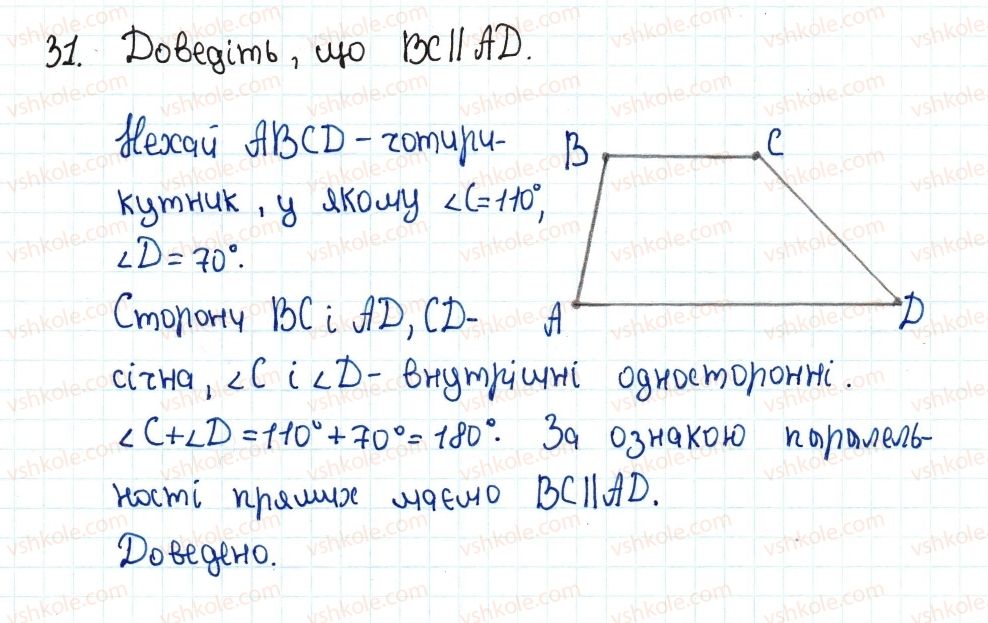 31. Доведіть, що BC || AD.
Нехай ABCD - чотири-
кутник, у якому ∠C=110°,
∠D = 70°.
Сторони BC і AD, CD-
січна, ∠C і ∠D - внутрішні односторонні.
∠C+∠D=110°+70°=180°. За ознакою паралель-
ності прямих маємо BC || AD.
Доведено.
B
C
A
D
vshkole.com